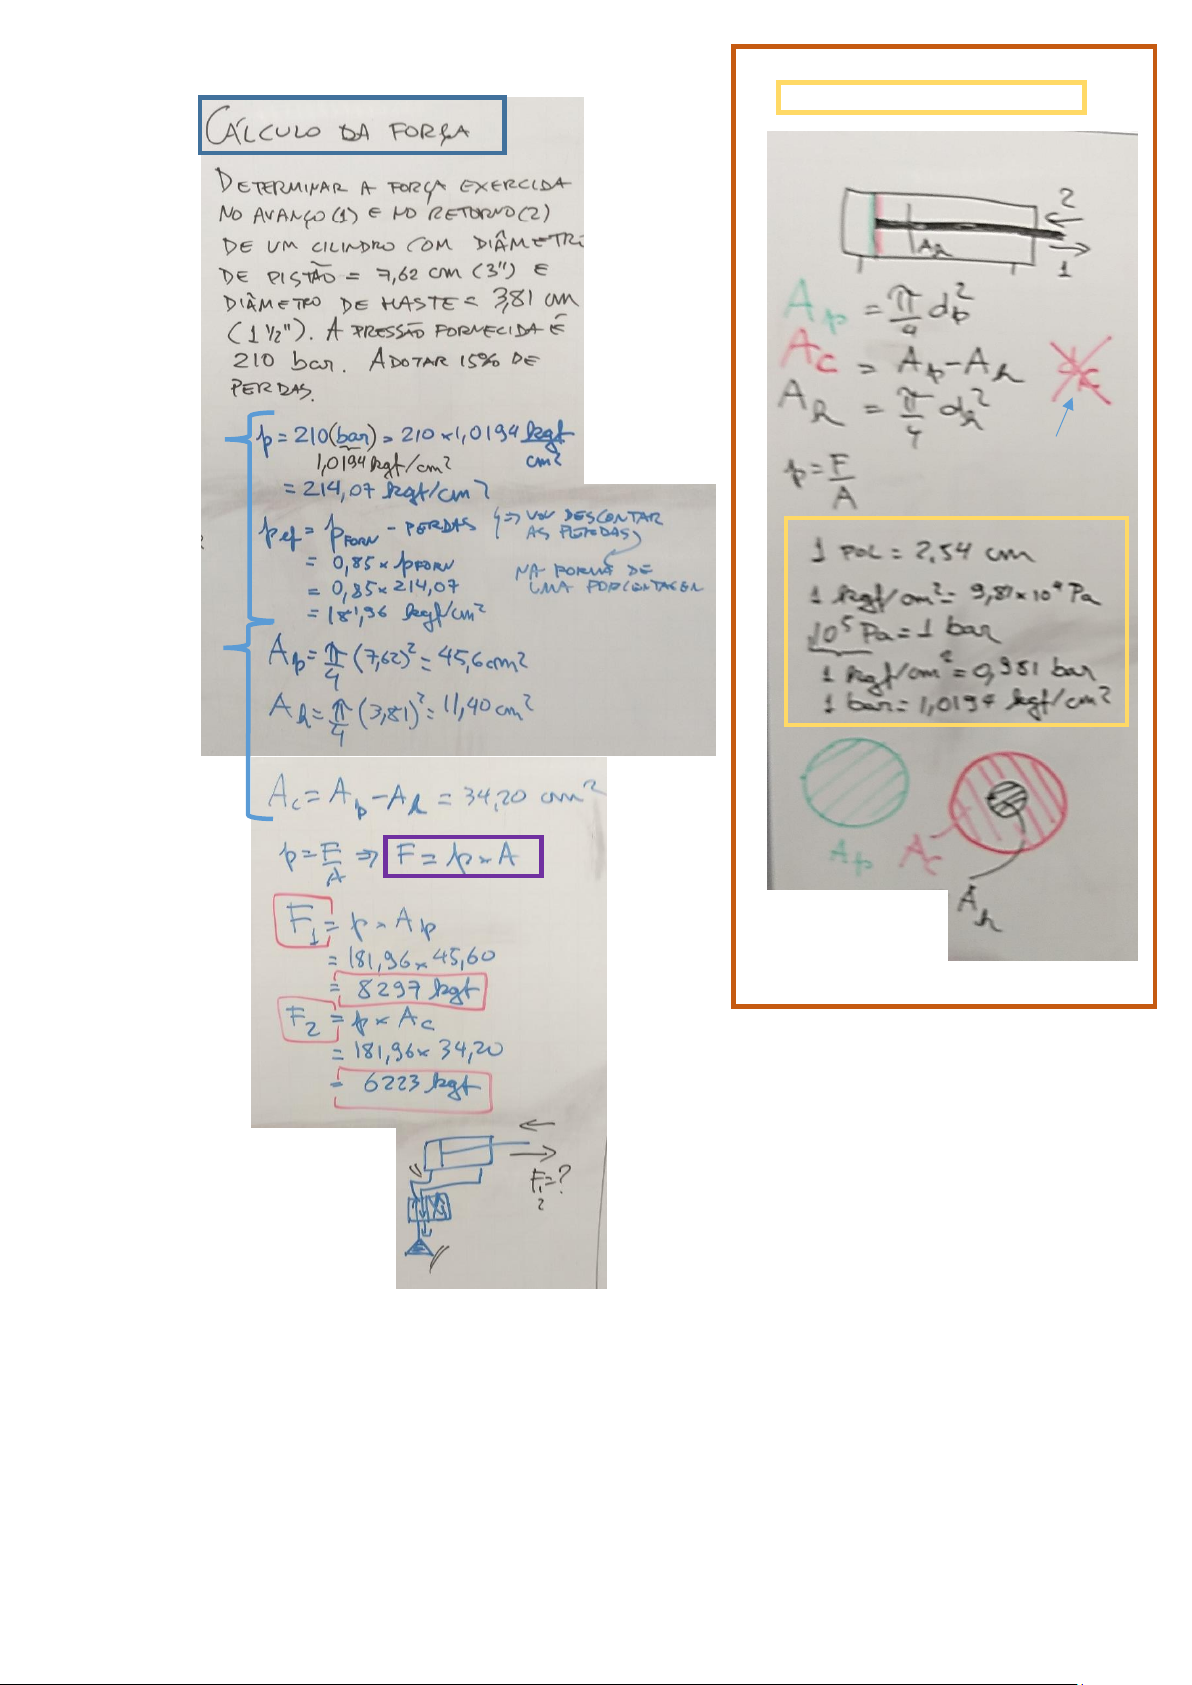 CÁLCULO DA FORÇA
DETERMINAR A FORÇA EXERCIDA
NO AVANÇO (1) E NO RETORNO (2)
DE UM CILINDRO COM DIÂMETRO
DE PISTÃO = 7,62 cm (3") E
DIÂMETRO DE HASTE = 3,81 cm
(1 1/2"). A PRESSÃO FORNECIDA É
210 bar. ADOTAR 15% DE
PERDAS.
p = 210 (bar) = 210 × 1,0194 kgf/cm²
1,0194 kgf/cm²
= 214,07 kgf/cm²
pef = pFORN - PERDAS } => VOU DESCONTAR
AS PERDAS
= 0,85 × pFORN
NA FORMA DE
UMA PORCENTAGEM
= 0,85 × 214,07
= 181,96 kgf/cm²
Ap = π/4 (7,62)² = 45,6 cm²
Ah = π/4 (3,81)² = 11,40 cm²
Ac = Ap - Ah = 34,20 cm²
p = F/A => F = p × A
F1 = p × Ap
= 181,96 × 45,60
= 8297 kgf
F2 = p × Ac
= 181,96 × 34,20
= 6223 kgf
F1 = ?
2
2
Ah
1
Ap = π/4 dp²
Ac = Ap - Ah
dc
Ah = π/4 dh²
p = F/A
1 POL = 2,54 cm
1 kgf/cm² = 9,81 × 10⁴ Pa
10⁵ Pa = 1 bar
1 kgf/cm² = 0,981 bar
1 bar = 1,0194 kgf/cm²
Ap
Ac
Ah